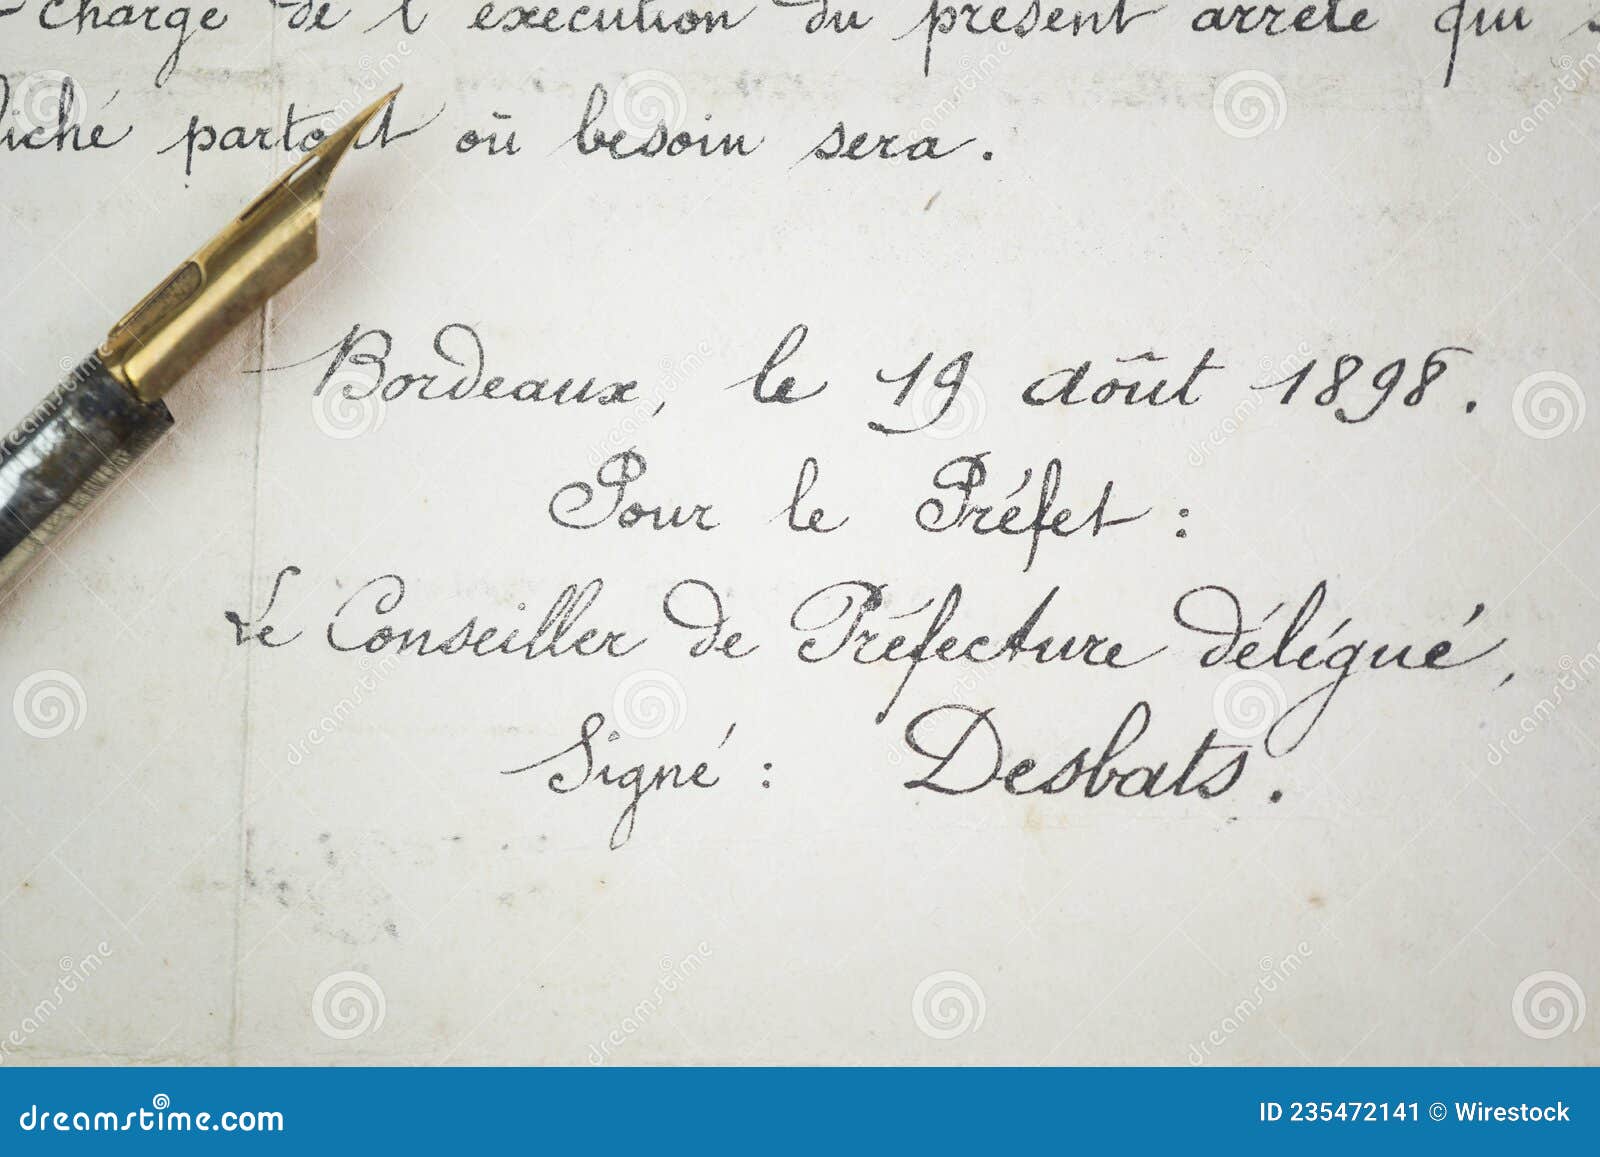 chargé de l'exécution du présent arrêté qui
partout où besoin sera.
Bordeaux, le 19 août 1898.
Pour le Préfet :
Le Conseiller de Préfecture délégué,
Signé : Desbats.
dreamstime.com
ID 235472141 © Wirestock